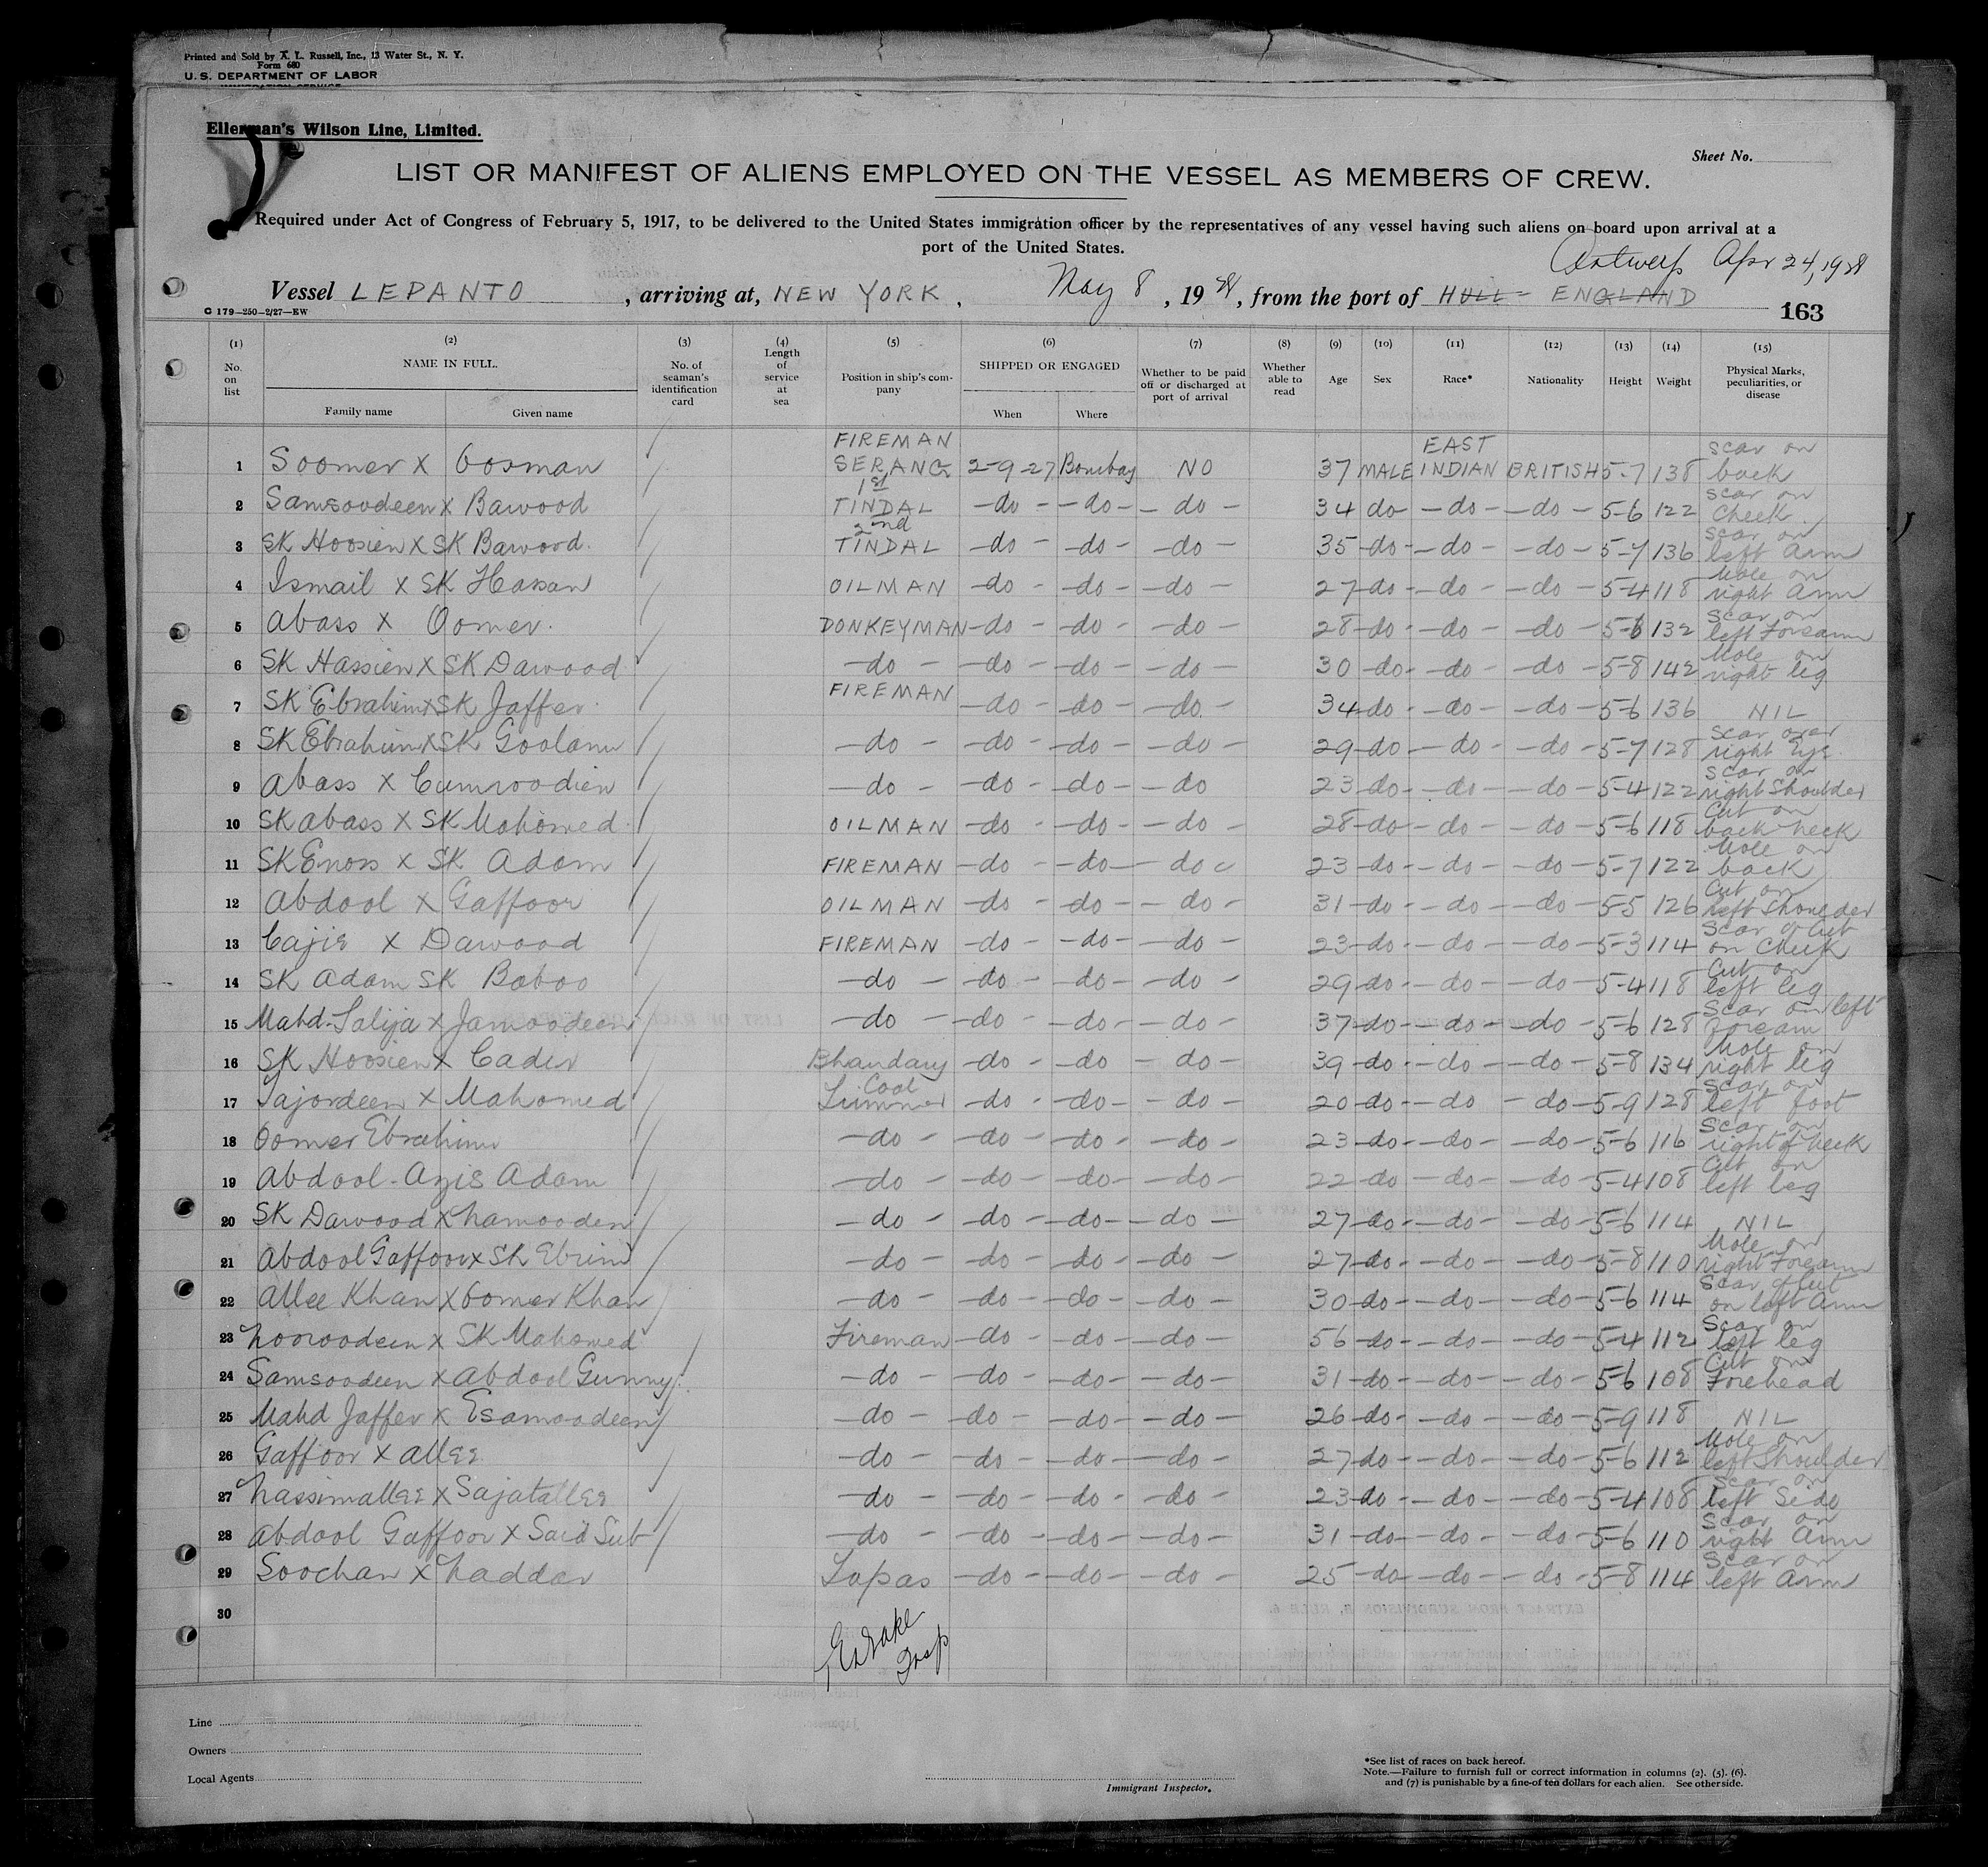 Printed and Sold by A. L. Russell, Inc., 13 Water St., N. Y.
Form 680
U. S. DEPARTMENT OF LABOR
IMMIGRATION SERVICE
Ellerman's Wilson Line, Limited.
Sheet No.
LIST OR MANIFEST OF ALIENS EMPLOYED ON THE VESSEL AS MEMBERS OF CREW.
Required under Act of Congress of February 5, 1917, to be delivered to the United States immigration officer by the representatives of any vessel having such aliens on board upon arrival at a
port of the United States.
Antwerp Apr 24, 1928
Vessel LEPANTO, arriving at, NEW YORK, May 8, 1928, from the port of HULL - ENGLAND
C 179—250—2/27—EW
163
(1) No. on list (2) NAME IN FULL. Family name Given name (3) No. of seaman's identification card (4) Length of service at sea (5) Position in ship's company (6) SHIPPED OR ENGAGED When Where (7) Whether to be paid off or discharged at port of arrival (8) Whether able to read (9) Age (10) Sex (11) Race* (12) Nationality (13) Height (14) Weight (15) Physical Marks, peculiarities, or disease
1 Soomer x Oosman FIREMAN SERANG 2-9-27 Bombay NO 37 MALE EAST INDIAN BRITISH 5-7 138 scar on back
2 Samsoodeen x Bawood 1st TINDAL —do— —do— —do— 34 do —do— —do— 5-6 122 scar on cheek
3 SK Hoosien x SK Bawood. 2nd TINDAL —do— —do— —do— 35 —do— —do— —do— 5-7 136 scar on left arm
4 Ismail x SK Hassan OILMAN —do— —do— —do— 27 —do— —do— —do— 5-4 118 Mole on right arm
5 Abass x Oomer. DONKEYMAN —do— —do— —do— 28 —do— —do— —do— 5-6 132 scar on left Forearm
6 SK Hassien x SK Dawood —do— —do— —do— —do— 30 —do— —do— —do— 5-8 142 Mole on right leg
7 SK Ebrahim x SK Jaffer. FIREMAN —do— —do— —do— 34 —do— —do— —do— 5-6 136 NIL
8 SK Ebrahim x SK Goolam —do— —do— —do— —do— 29 —do— —do— —do— 5-7 128 scar over right Eye
9 Abass x Cumroodien —do— —do— —do— —do 23 —do— —do— —do— 5-4 122 scar on right shoulder
10 SK Abass x SK Mahomed OILMAN —do— —do— —do— 28 —do— —do— —do— 5-6 118 Cut on back neck
11 SK Enoss x SK Adam FIREMAN —do— —do— —do 23 —do— —do— —do— 5-7 122 Mole on back
12 Abdool x Gaffoor OILMAN —do— —do— —do— 31 —do— —do— —do— 5-5 126 Cut on left shoulder
13 Cajie x Dawood FIREMAN —do— —do— —do— 23 —do— —do— —do— 5-3 114 Scar of Cut on Cheek
14 SK Adam SK Baboo —do— —do— —do— —do— 29 —do— —do— —do— 5-4 118 Cut on left leg
15 Mahd. Salija x Jamoodeen —do— —do— —do— —do— 37 —do— —do— —do— 5-6 128 Scar on left Foream
16 SK Hoosien x Cader Bhandary —do— —do —do— 39 —do— —do— —do— 5-8 134 Mole on right leg
17 Tajordeen x Mahomed Coal —do— —do— —do— 20 —do— —do —do— 5-9 128 Scar on left foot
18 Oomer Ebrahim —do— —do— —do— —do— 23 —do— —do— —do— 5-6 116 Scar on right of neck
19 Abdool-Azis Adam —do— —do— —do— —do— 22 —do— —do— —do— 5-4 108 Cut on left leg
20 SK Dawood x Namooden —do— —do— —do— —do— 27 —do— —do— —do— 5-6 114 NIL
21 Abdool Gaffoor x SK Ebrim —do— —do— —do— —do— 27 —do— —do— —do— 5-8 110 Mole on right Forearm
22 Allee Khan x Oomer Khan —do— —do— —do— —do— 30 —do— —do— —do— 5-6 114 Scar of Cut on left arm
23 Nooroodeen x SK Mahomed Fireman —do— —do— —do— 56 —do— —do— —do— 5-4 112 Scar on left leg
24 Samsoodeen x Abdool Gunny. —do— —do— —do— —do— 31 —do— —do— —do— 5-6 108 Cut on Forehead
25 Mahd Jaffer x Esamoodeen —do— —do— —do— —do— 26 —do— —do— —do— 5-9 118 NIL
26 Gaffoor x Allee —do— —do— —do— —do— 27 —do— —do— —do— 5-6 112 Mole on left shoulder
27 Nassimallee x Sajatallee —do— —do— —do— —do— 23 —do— —do— —do— 5-4 108 Scar on left Side
28 Abdool Gaffoor x Said Sub —do— —do— —do— —do— 31 —do— —do— —do— 5-6 110 Scar on right Arm
29 Soochan x Naddar Topas —do— —do— —do— 25 —do— —do— —do— 5-8 114 Scar on left Arm
30
Line
Owners
Local Agents
Immigrant Inspector.
*See list of races on back hereof.
Note.—Failure to furnish full or correct information in columns (2). (5). (6).
and (7) is punishable by a fine of ten dollars for each alien. See other side.